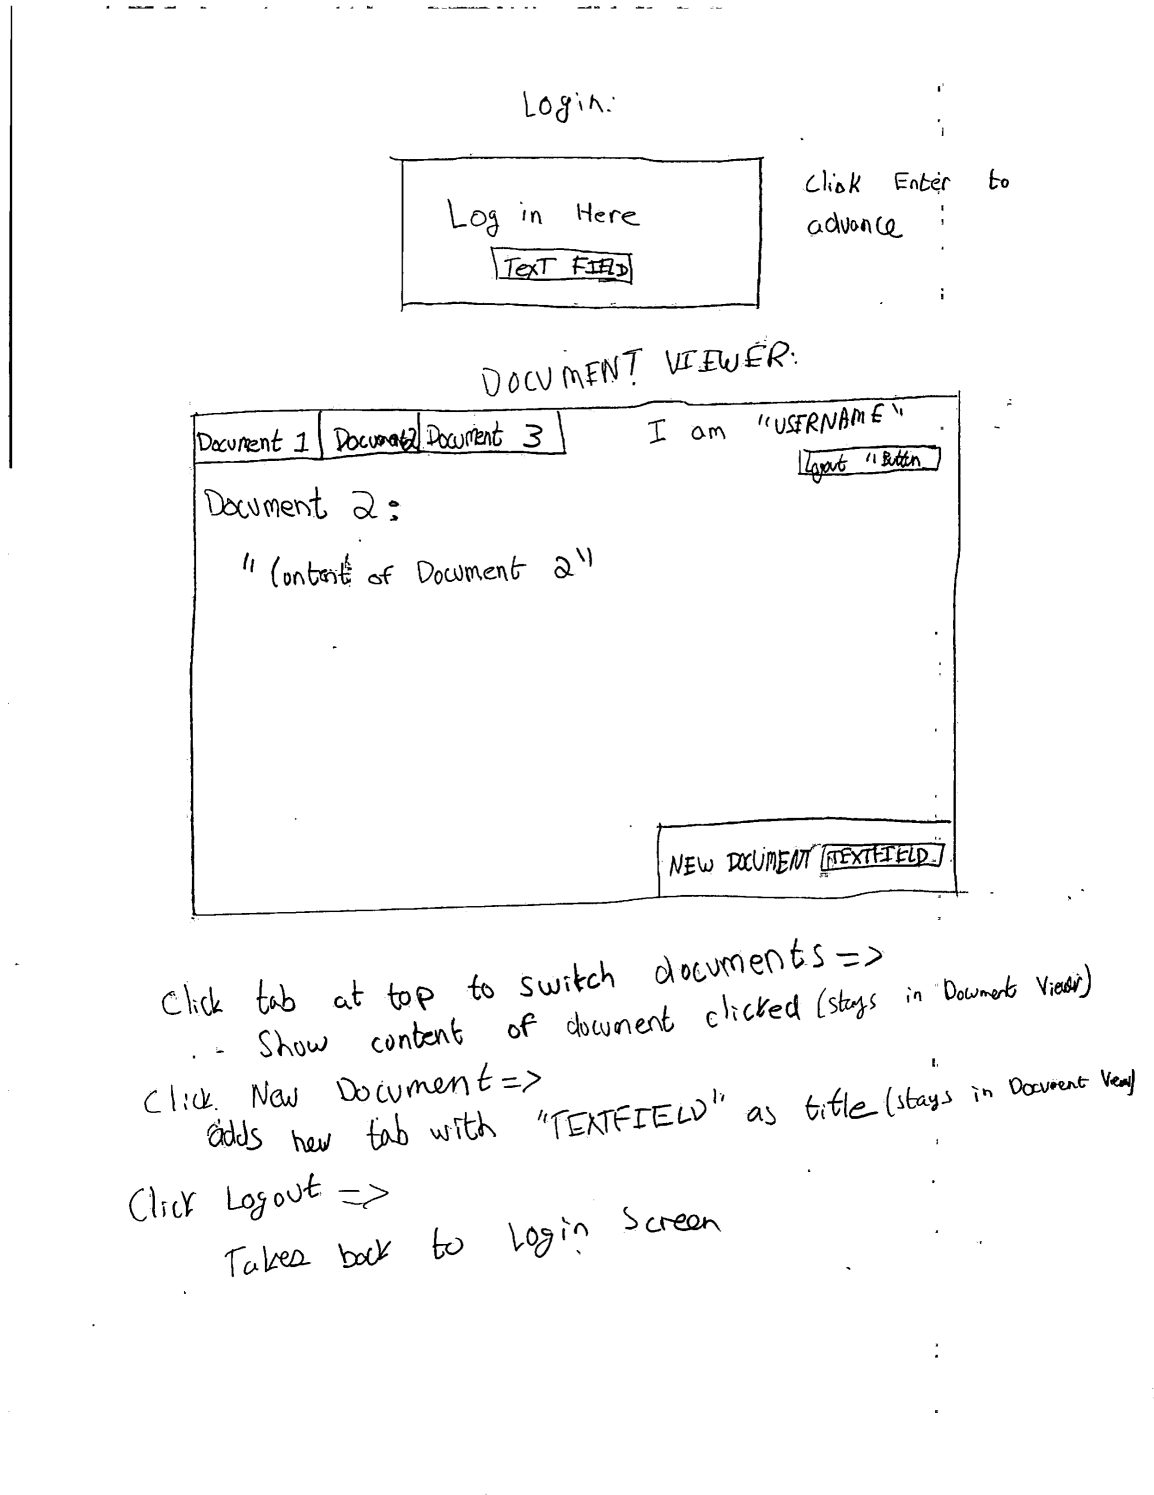 Login:
Click Enter to
advance
Log in Here
TexT FIELD
DOCUMENT VIEWER:
Document 1 Document2 Document 3
I am "USERNAME"
Logout "Button
Document 2:
"Content of Document 2"
NEW DOCUMENT TEXTFIELD
Click tab at top to switch documents =>
- Show content of document clicked (stays in Document Viewer)
Click New Document =>
adds new tab with "TEXTFIELD" as title (stays in Document View)
Click Logout =>
Takes back to Login Screen